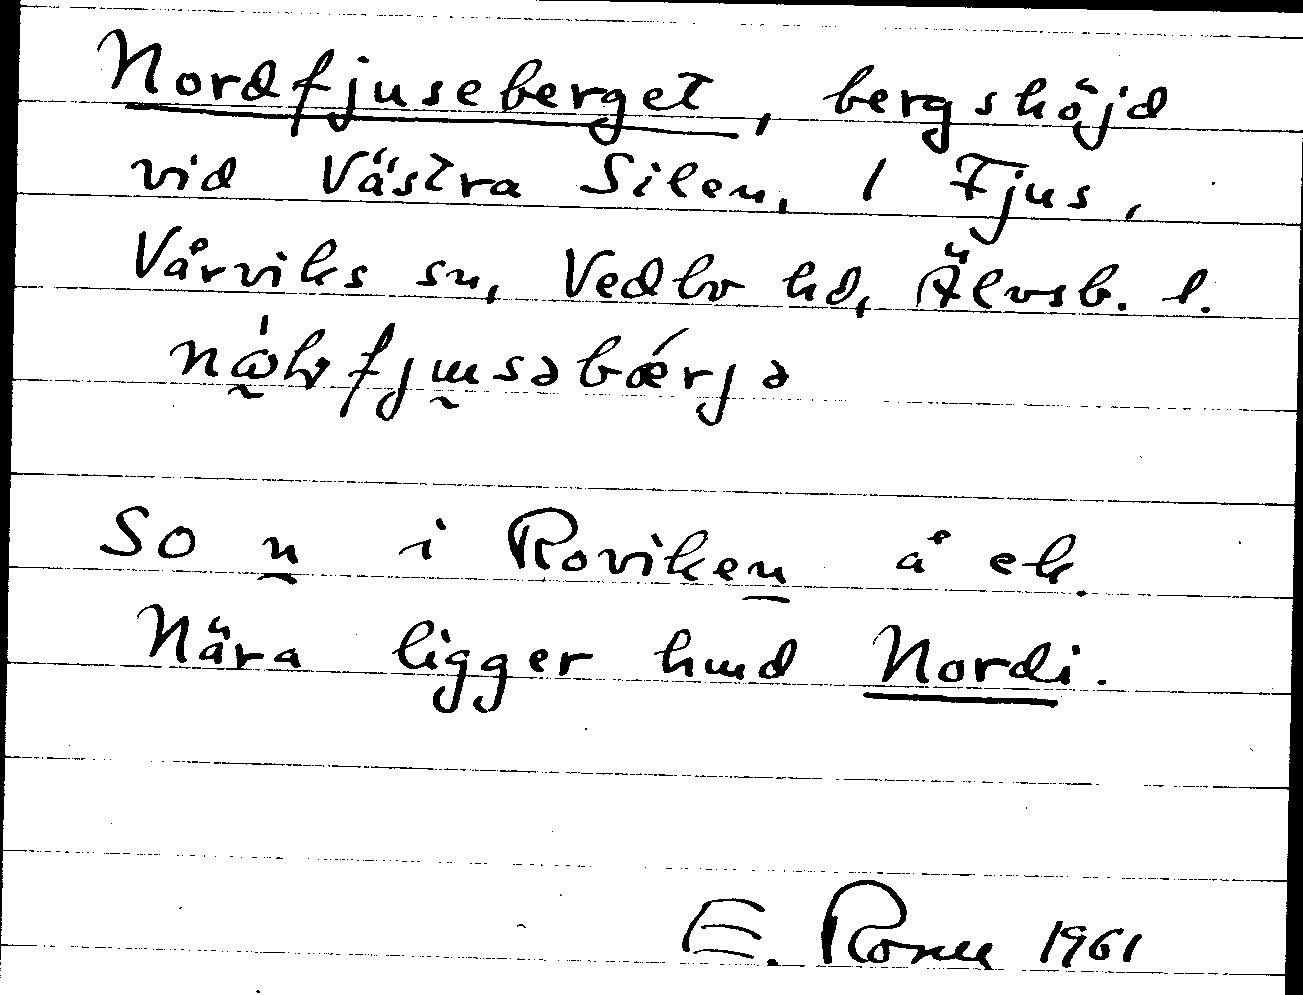 Nordfjuseberget, bergshöjd
vid Västra Silen, 1 Fjus,
Vårviks sn, Vedbo hd, Älvsb. l.
SO n i Roviken å ek.
Nära ligger hmd Nordi.
E. 1961